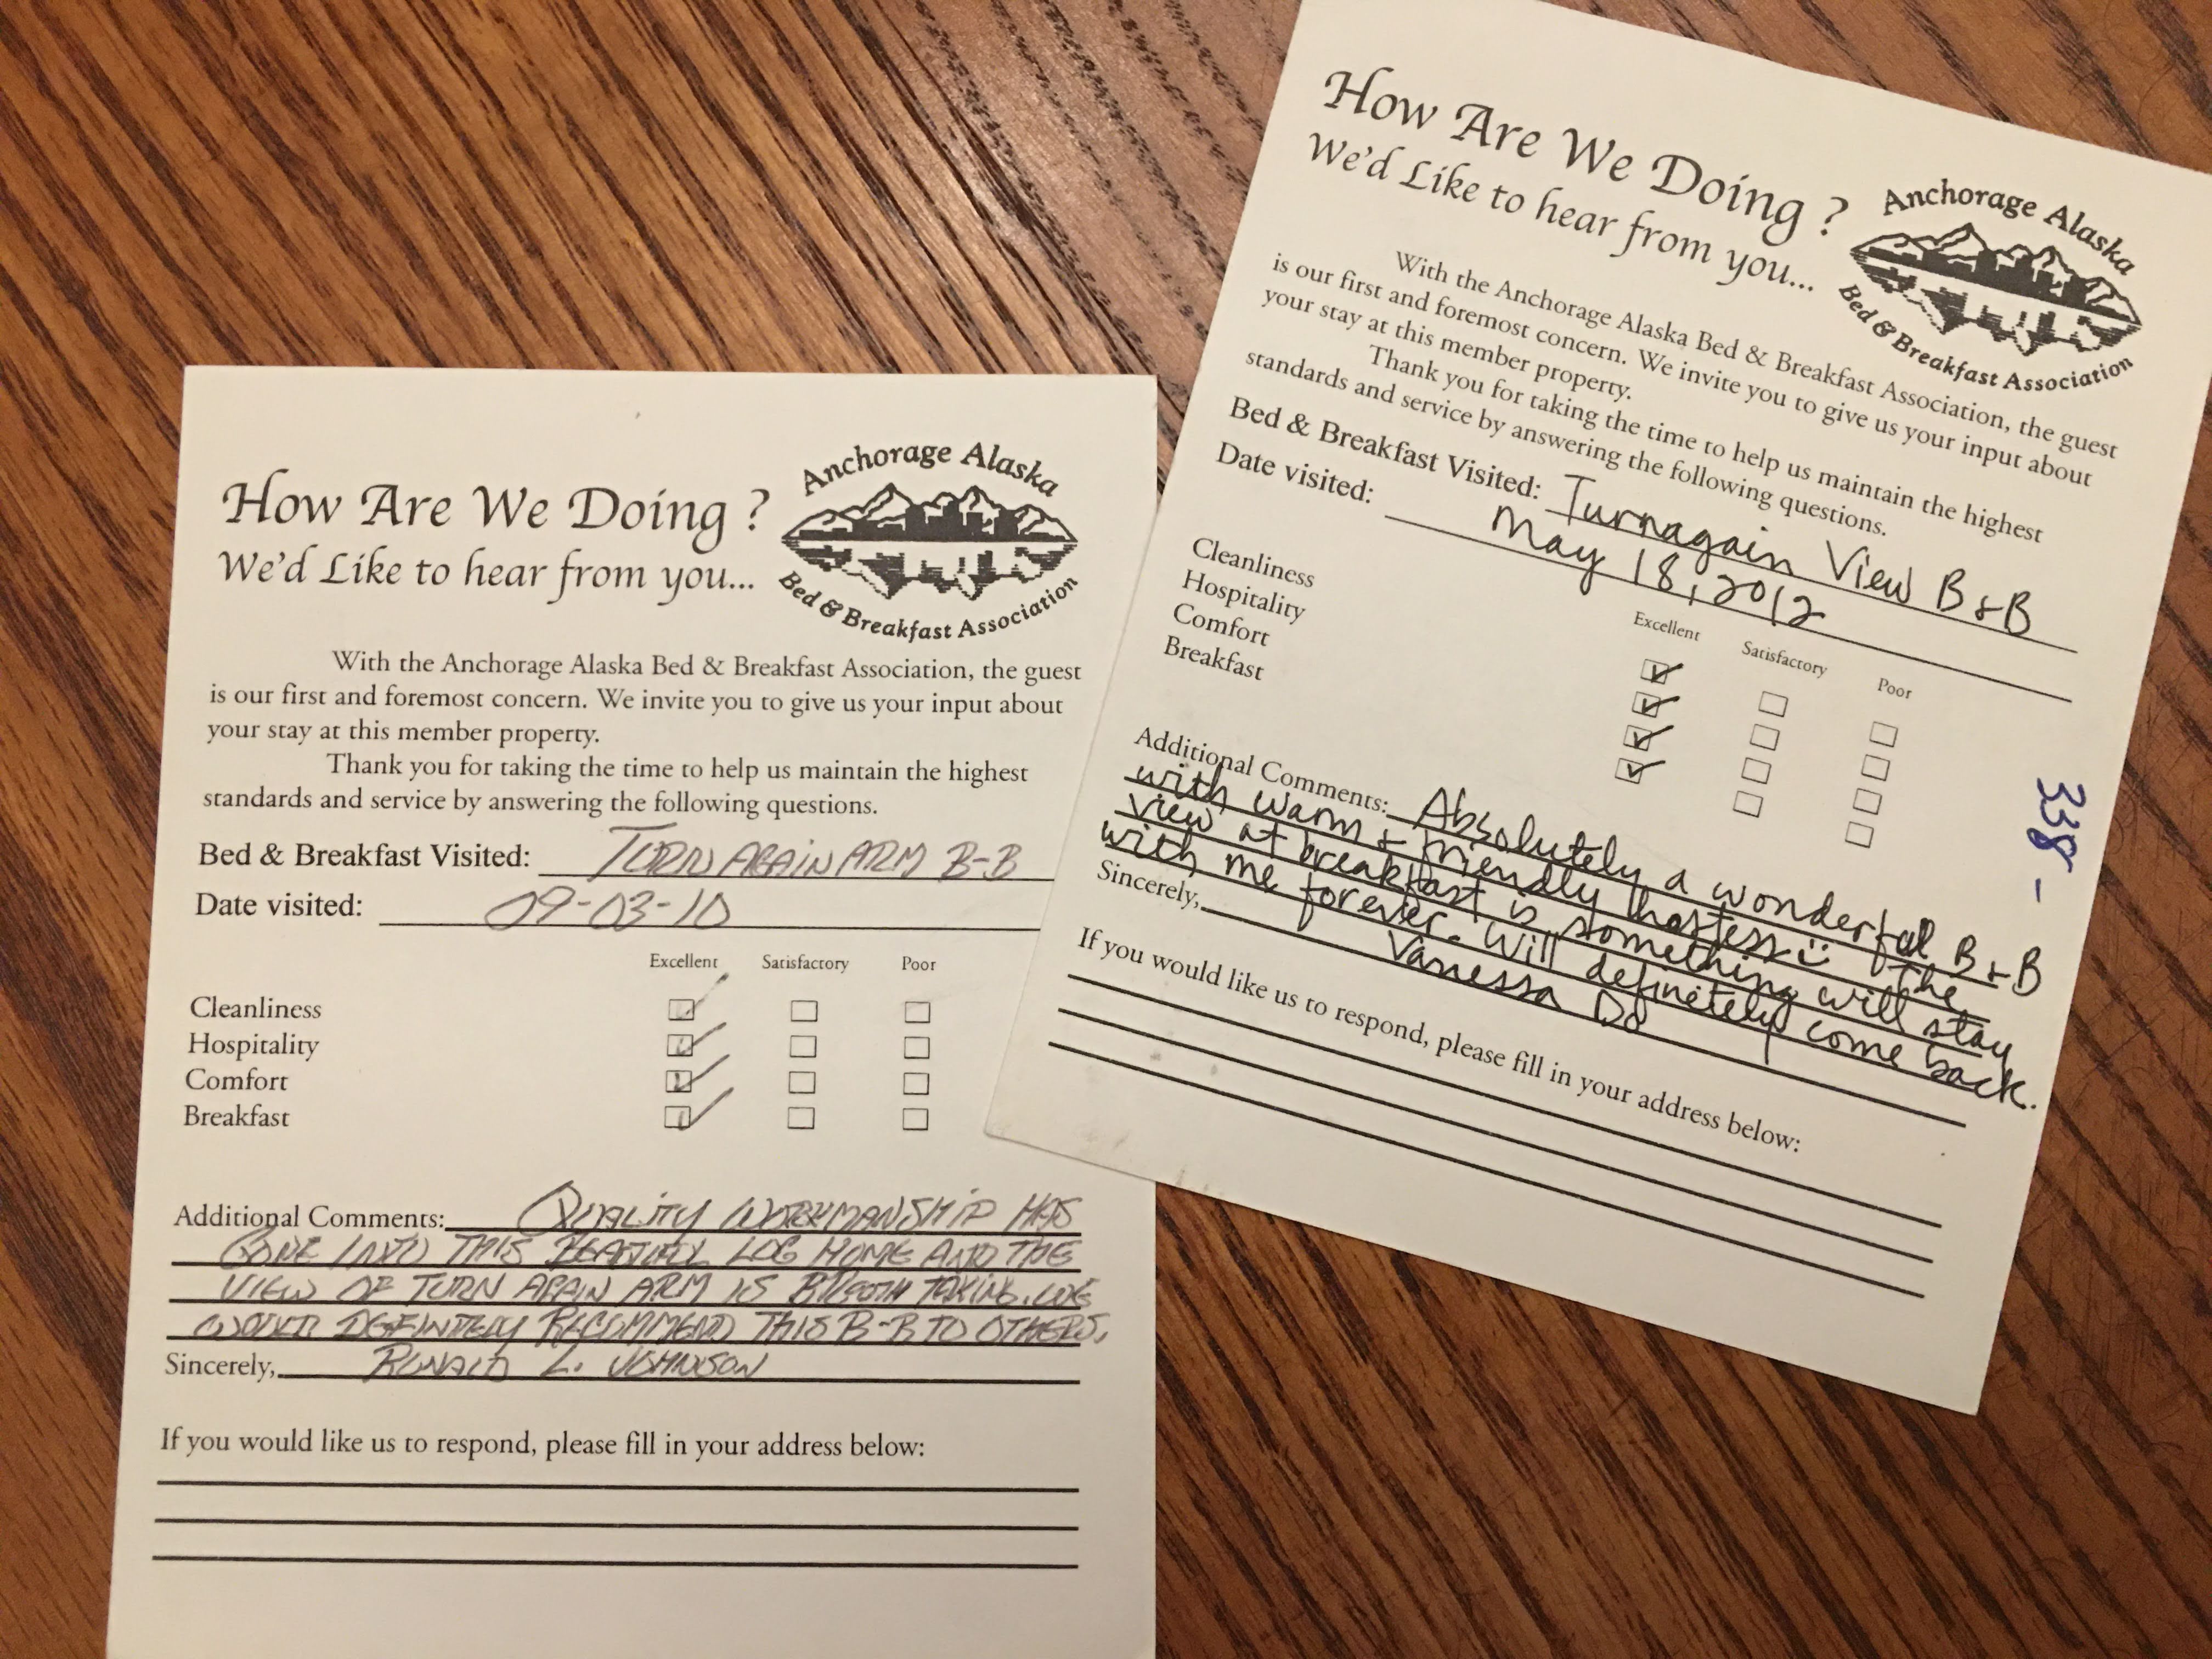 How Are We Doing ?
We'd Like to hear from you...
Anchorage Alaska
Bed & Breakfast Association
With the Anchorage Alaska Bed & Breakfast Association, the guest
is our first and foremost concern. We invite you to give us your input about
your stay at this member property.
Thank you for taking the time to help us maintain the highest
standards and service by answering the following questions.
Bed & Breakfast Visited: TURN AGAIN ARM B-B
Date visited: 09-03-10
Excellent Satisfactory Poor
Cleanliness
Hospitality
Comfort
Breakfast
Additional Comments: QUALITY WORKMANSHIP HAS
GONE INTO THIS BEATIFUL LOG HOME AND THE
VIEW OF TURN AGAIN ARM IS BREATH TAKING. WE
WOULD DEFINITELY RECOMMEND THIS B-B TO OTHERS.
Sincerely, RONALD L. JOHNSON
If you would like us to respond, please fill in your address below:
How Are We Doing ?
We'd Like to hear from you...
Anchorage Alaska
Bed & Breakfast Association
With the Anchorage Alaska Bed & Breakfast Association, the guest
is our first and foremost concern. We invite you to give us your input about
your stay at this member property.
Thank you for taking the time to help us maintain the highest
standards and service by answering the following questions.
Bed & Breakfast Visited: Turnagain View B & B
Date visited: May 18, 2012
Excellent Satisfactory Poor
Cleanliness
Hospitality
Comfort
Breakfast
338 -
Additional Comments: Absolutely a wonderful B & B
with warm & friendly hostess :) The
view at breakfast is something will stay
with me forever. Will definitely come back.
Sincerely, Vanessa Do
If you would like us to respond, please fill in your address below: